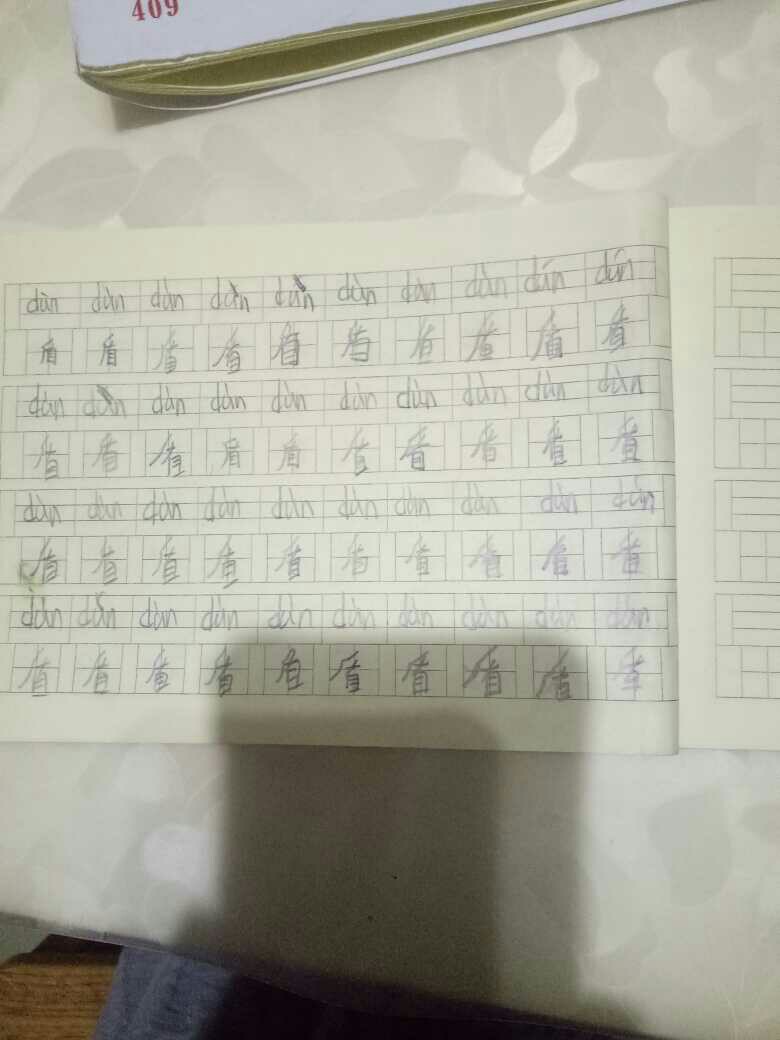 409
dùn dùn dùn dùn dùn dùn dùn dùn dún dún
盾 盾 盾 盾 盾 盾 盾 盾 盾 盾
dùn dùn dùn dùn dùn dùn dùn dùn dùn dùn
盾 盾 盾 盾 盾 盾 盾 盾 盾 盾
dùn dùn dùn dùn dùn dùn dùn dùn dùn dùn
盾 盾 盾 盾 盾 盾 盾 盾 盾 盾
dùn dùn dùn dùn dùn dùn dùn dùn dùn dùn
盾 盾 盾 盾 盾 盾 盾 盾 盾 盾